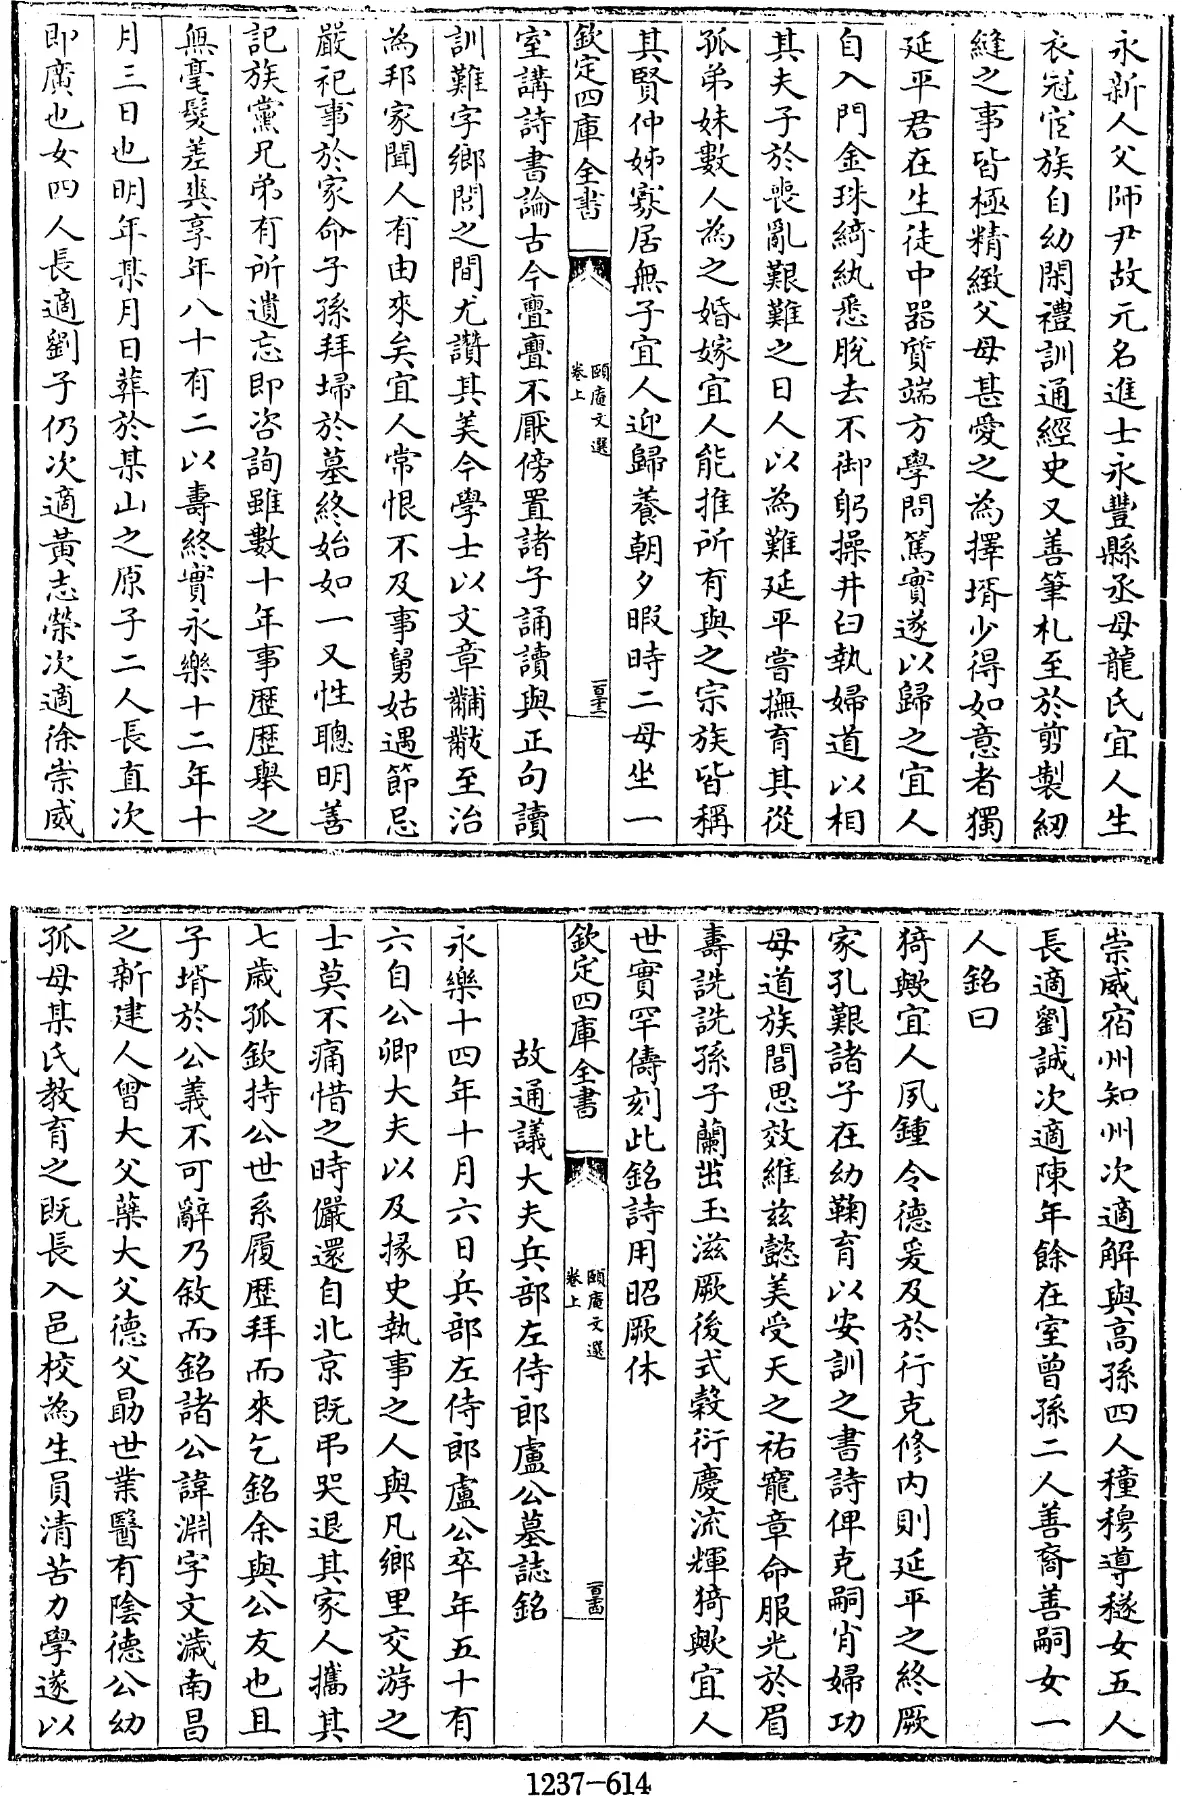 永新人父師尹故元名進士永豐縣丞母龍氏宜人生
衣冠宦族自幼閑禮訓通經史又善筆札至於剪製紉
縫之事皆極精緻父母甚愛之為擇壻少得如意者獨
延平君在生徒中器質端方學問篤實遂以歸之宜人
自入門金珠綺紈悉脫去不御躬操井臼執婦道以相
其夫子於喪亂艱難之日人以為難延平嘗撫育其從
孤弟妹數人為之婚嫁宜人能推所有與之宗族皆稱
其賢仲姊寡居無子宜人迎歸養朝夕暇時二母坐一
欽定四庫全書
頤庵文選
卷上
一百三十三
室講詩書論古今亹亹不厭傍置諸子誦讀與正句讀
訓難字鄉閭之間尤讚其美今學士以文章黼黻至治
為邦家聞人有由來矣宜人常恨不及事舅姑遇節忌
嚴祀事於家命子孫拜埽於墓終始如一又性聰明善
記族黨兄弟有所遺忘即咨詢雖數十年事歷歷舉之
無毫髮差爽享年八十有二以壽終實永樂十二年十
月三日也明年某月日葬於某山之原子二人長直次
即廣也女四人長適劉子仍次適黃志榮次適徐崇威
崇威宿州知州次適解與高孫四人穜穆導穟女五人
長適劉誠次適陳年餘在室曾孫二人善裔善嗣女一
人銘曰
猗歟宜人夙鍾令德爰及於行克修内則延平之終厥
家孔艱諸子在幼鞠育以安訓之書詩俾克嗣肖婦功
母道族閭思效維兹懿美受天之祐寵章命服光於眉
壽詵詵孫子蘭茁玉滋厥後式穀衍慶流輝猗歟宜人
世實罕儔刻此銘詩用昭厥休
欽定四庫全書
頤庵文選
卷上
一百三十四
故通議大夫兵部左侍郎盧公墓誌銘
永樂十四年十月六日兵部左侍郎盧公卒年五十有
六自公卿大夫以及掾史執事之人與凡鄉里交游之
士莫不痛惜之時儼還自北京既弔哭退其家人攜其
七歲孤欽持公世系履歷拜而來乞銘余與公友也且
子壻於公義不可辭乃敘而銘諸公諱淵字文濊南昌
之新建人曾大父蘗大父德父勗世業醫有陰德公幼
孤母某氏教育之既長入邑校為生員清苦力學遂以
1237-614